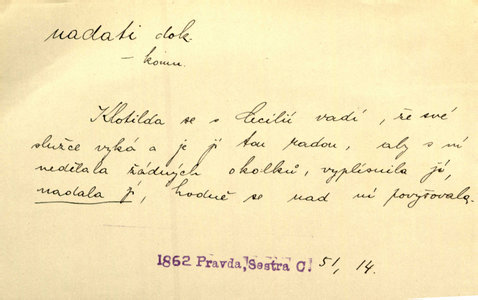 nadati dok.
– komu.
Klotilda se s Cecilií vadí, že své
služce vyká a je jí tou radou, aby s ní
nedělala žádných okolků, vyplísnila ji,
nadala jí, hodně se nad ni povyšovala.
1862 Pravda, Sestra C. 51, 14.